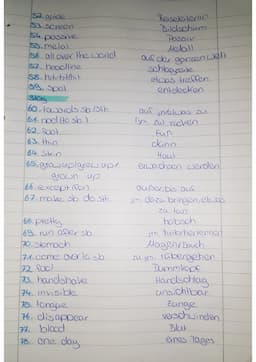 52. guide Reiseleiter/in
53. screen Bildschirm
54. passive Passiv
55. metal Metall
56. all over the world auf der ganzen Welt
57. headline Schlagzeile
58. hit, hit, hit etwas treffen
59. spot entdecken
Story
60. towards sb./sth. auf jmd/etwas zu
61. nod (to sb.) jm. zu nicken
62. foot Fuß
63. thin dünn
64. skin Haut
65. grow up, grew up, erwachsen werden
grown up
66. except for außer, bis auf
67. make sb. do sth. jn. dazu bringen, etwas
zu tun
68. pretty hübsch
69. run after sb. jm. hinterherrennen
70. stomach Magen, Bauch
71. come over to sb. zu jm. rübergehen
72. fool Dummkopf
73. handshake Handschlag
74. invisible unsichtbar
75. tongue Zunge
76. disappear verschwinden
77. blood Blut
78. one day eines Tages